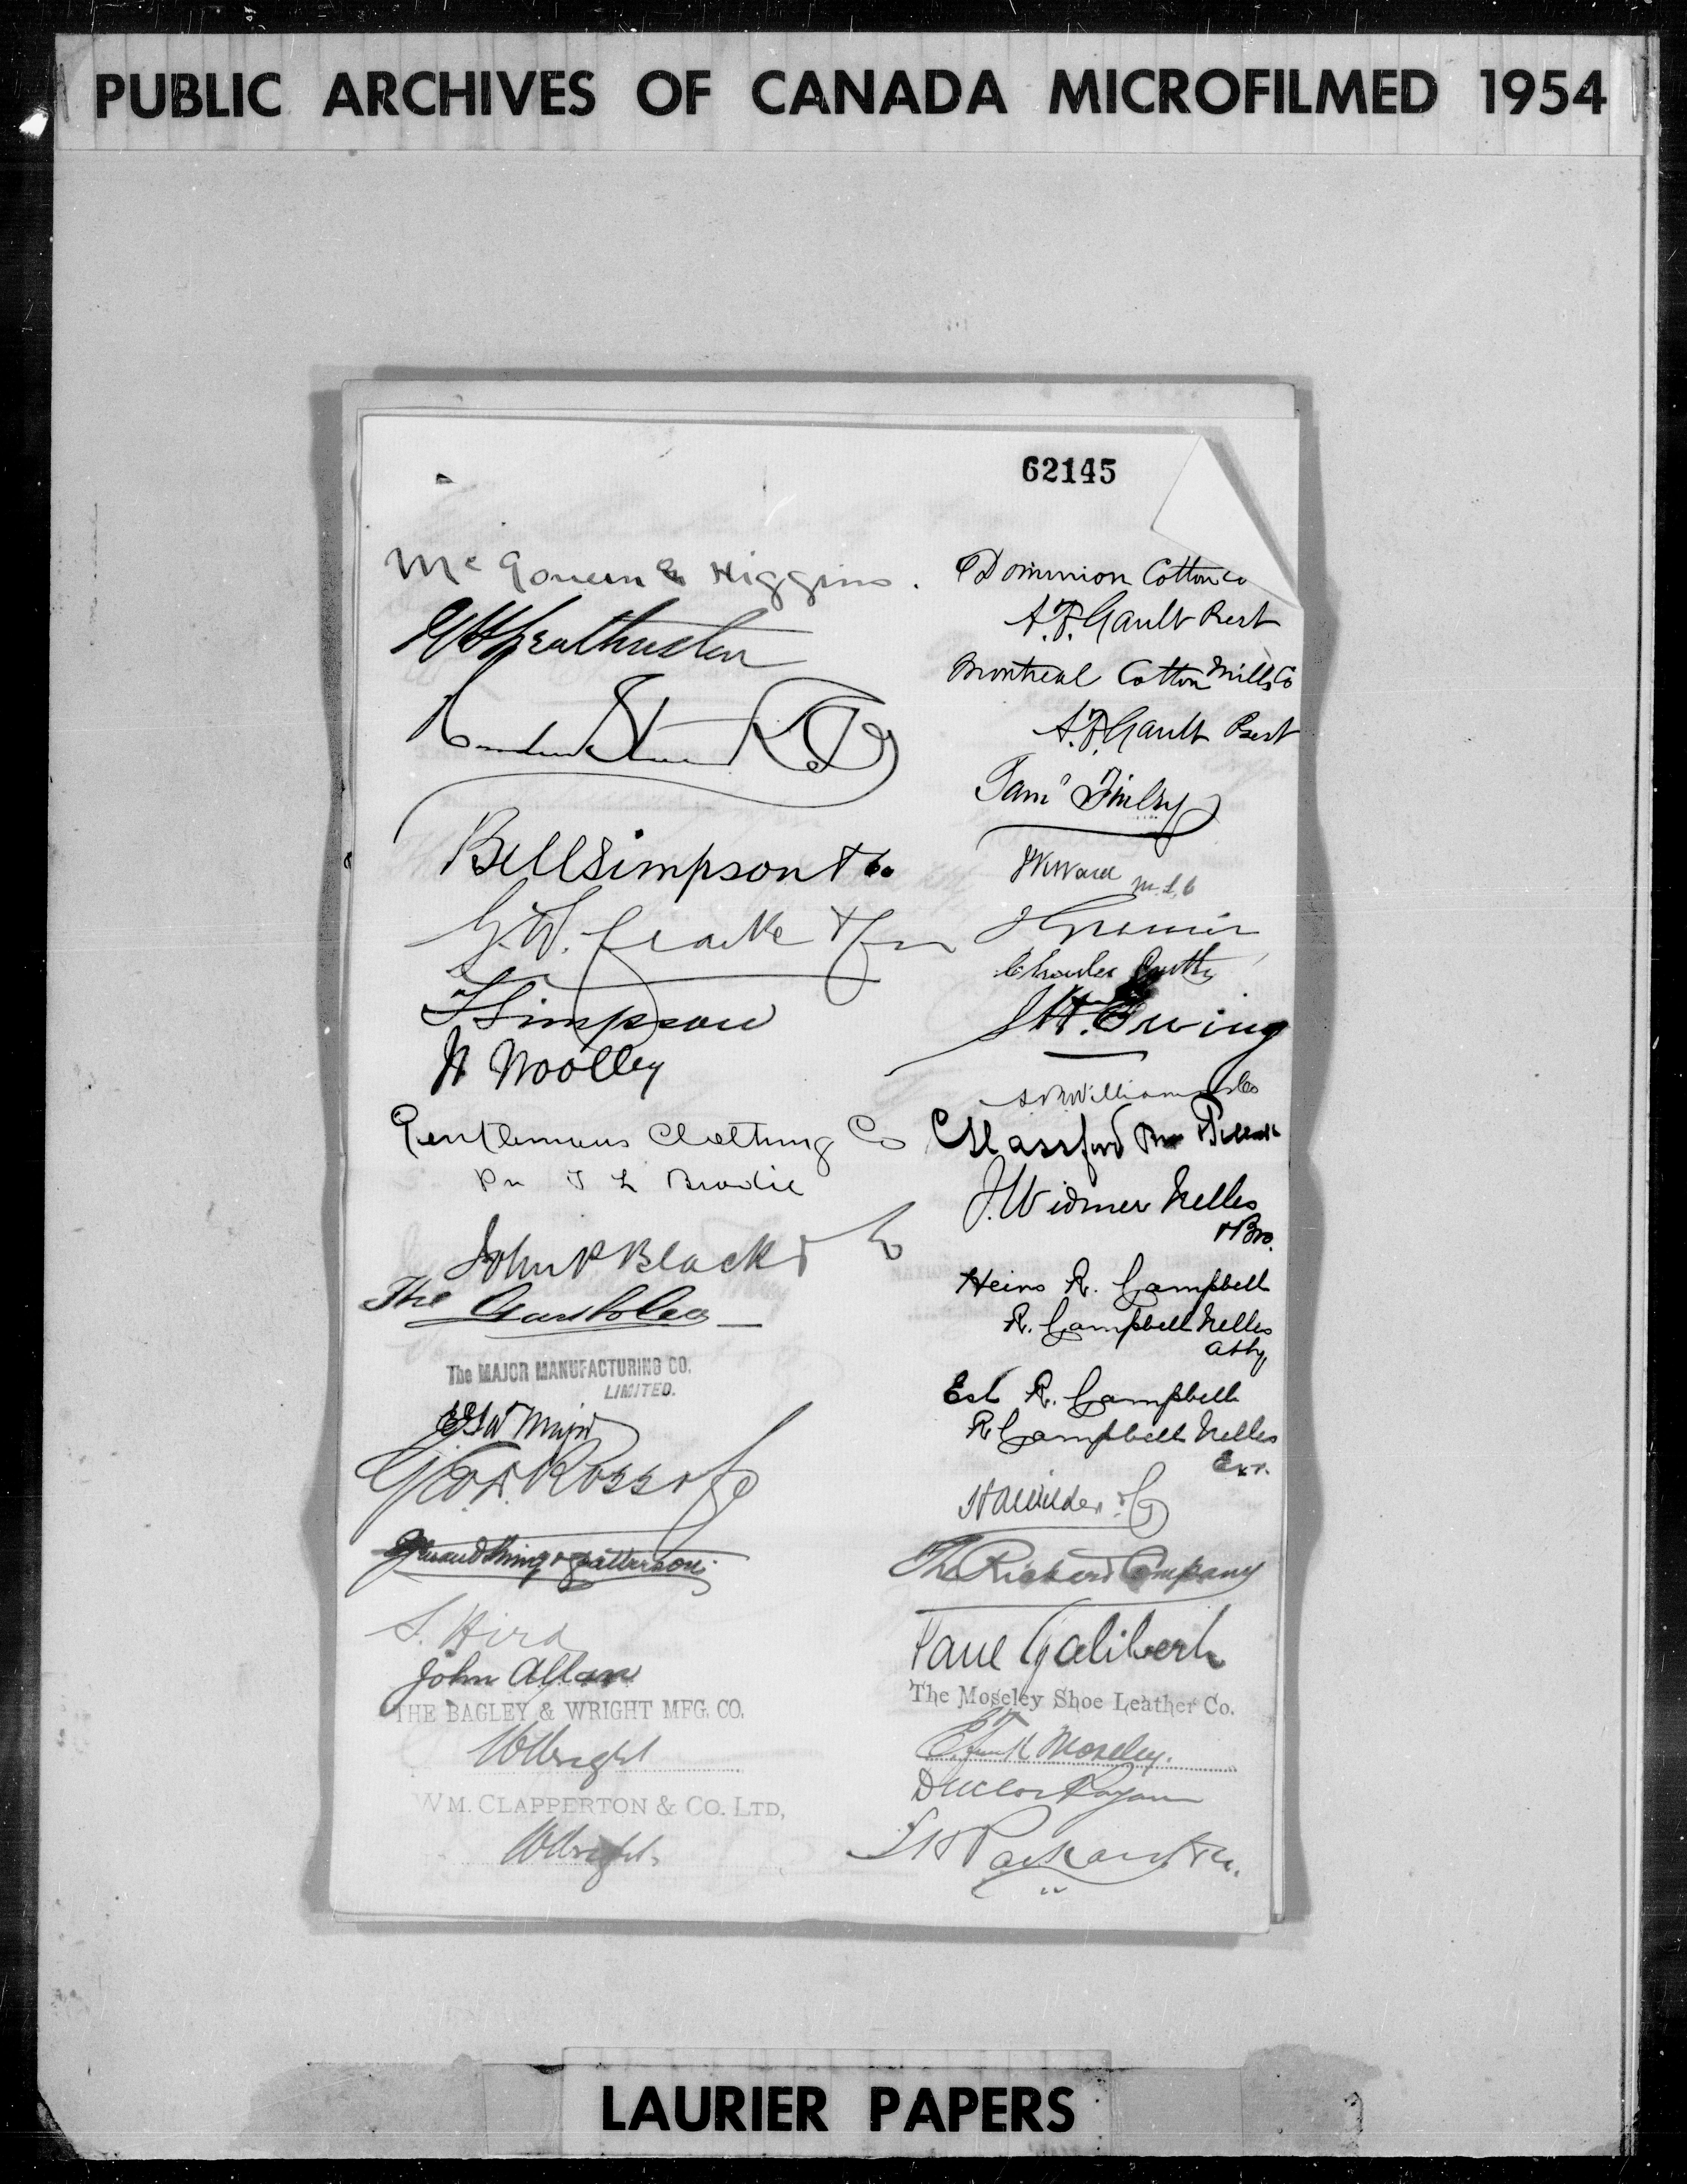 PUBLIC ARCHIVES OF CANADA MICROFILMED 1954
62145
Mc Govern & Higgins.
Bell Simpson & Co
G. W. & 
T Simpson
N Woolley
Gentlemens Clothing Co
Pr T L Brodie
John P Black & Co
The
The MAJOR MANUFACTURING CO.
LIMITED.
Major
Geo. D. Ross & Co
& Patterson
S. Hird
John Allan
THE BAGLEY & WRIGHT MFG. CO.
W Wright
WM. CLAPPERTON & CO. LTD,
W Wright
Dominion Cotton Co
A. F. Gault Prest
Montreal Cotton Mills Co
A. F. Gault Prest
Saml Finley
J K Ward M.L.C
J Grenier
Charles
J H.
Williams & Co
Glassford Bros &
J. Widmer Nelles
& Bro.
Heirs R. Campbell
R. Campbell Nelles
Atty
Est R. Campbell
R Campbell Nelles
Exr.
H A Wilder & Co
The Company
Paul Galibert
The Moseley Shoe Leather Co.
Moseley.
Duclos & Payan
L H Packard & Co.
LAURIER PAPERS